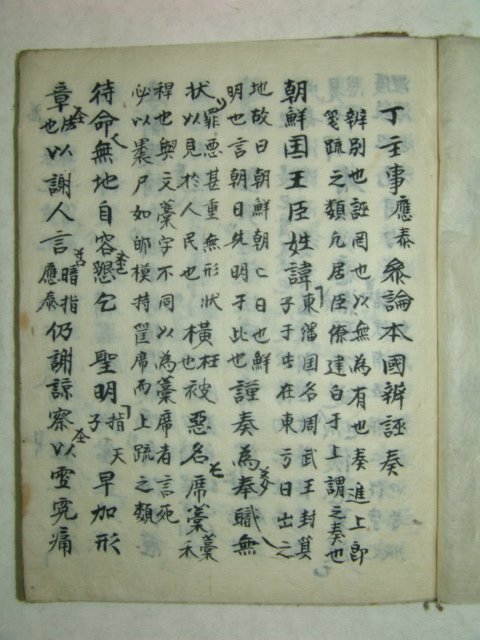 丁主事應泰參論本國辨誣奏
辨別也誣罔也以無爲有也奏進上卽
箋疏之類凡居臣僚建白于上謂之奏也
朝鮮国王臣姓諱
東藩国名周武王封箕
子于此在東方日出之
地故曰朝鮮朝亡日也鮮
明也言朝日先明于此也
謹奏爲奉職無
状
以罪悪甚重無形状
以見於人民也
橫
枉也
被惡名席藁
藁禾
稈也與文藁字不同以爲藁席者言死
必以裹尸如邮模持筐席而上疏之類
待命無地自容懇乞 聖明
指天
子
早加形
章
法也
以謝人言
暗指
應泰
仍謝諒察以雪寃痛